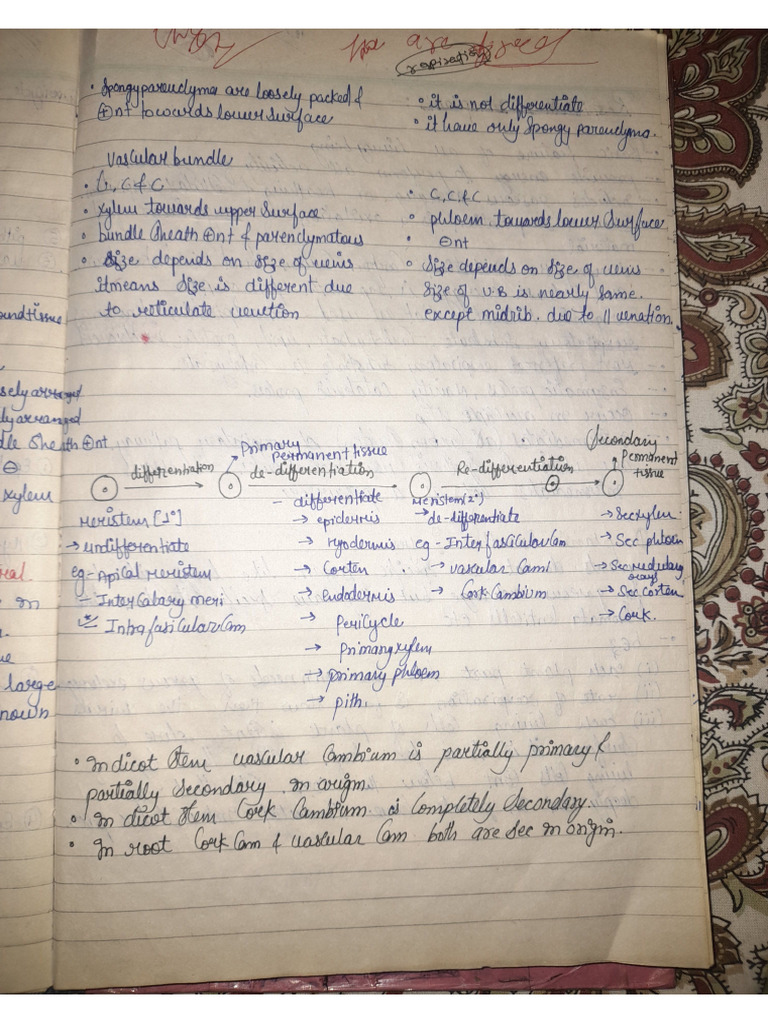 respiration
• Spongy parenchyma are loosely packed &
⊕nt towards lower surface
• it is not differentiate
• it have only Spongy parenchyma.
Vascular bundle
• C, C & C
• xylem towards upper surface
• bundle Sheath ⊕nt & parenchymatous
• Size depends on size of veins
it means size is different due
to reticulate venetion
• C, C, & C
• phloem towards lower Surface
• ⊖nt
• Size depends on size of veins
size of V.B is nearly same.
except midrib. due to || venation.
ound tissue
sely arranged
ly arranged
dle Sheath ⊕nt
⊖
xylem
large
nown
differentiation
Primary
permanent tissue
de-differentiation
Re-differentiation
Secondary
Permanent
tissue
Meristem [1°]
→ undifferentiate
eg - Apical Meristem
- Intercalary meri
Intrafasicular Cam
- differentiate
→ epidermis
→ hyodermis
→ Corten
→ Endodermis
→ Pericycle
→ Primary xylem
→ primary phloem
→ pith.
Meristem (2°)
→ de-differentiate
eg - Interfascicular Cam
→ vascular Cami
→ Cork Cambium
→ Sec xylem
→ Sec phloem
→ Sec medulary
rays
→ Sec Corten
→ Cork.
• In dicot Stem vascular Cambium is partially primary &
partially Secondary in origin.
• In dicot stem Cork Cambium is Completely Secondary.
• In root Cork Cam & vascular Cam both are sec in origin.